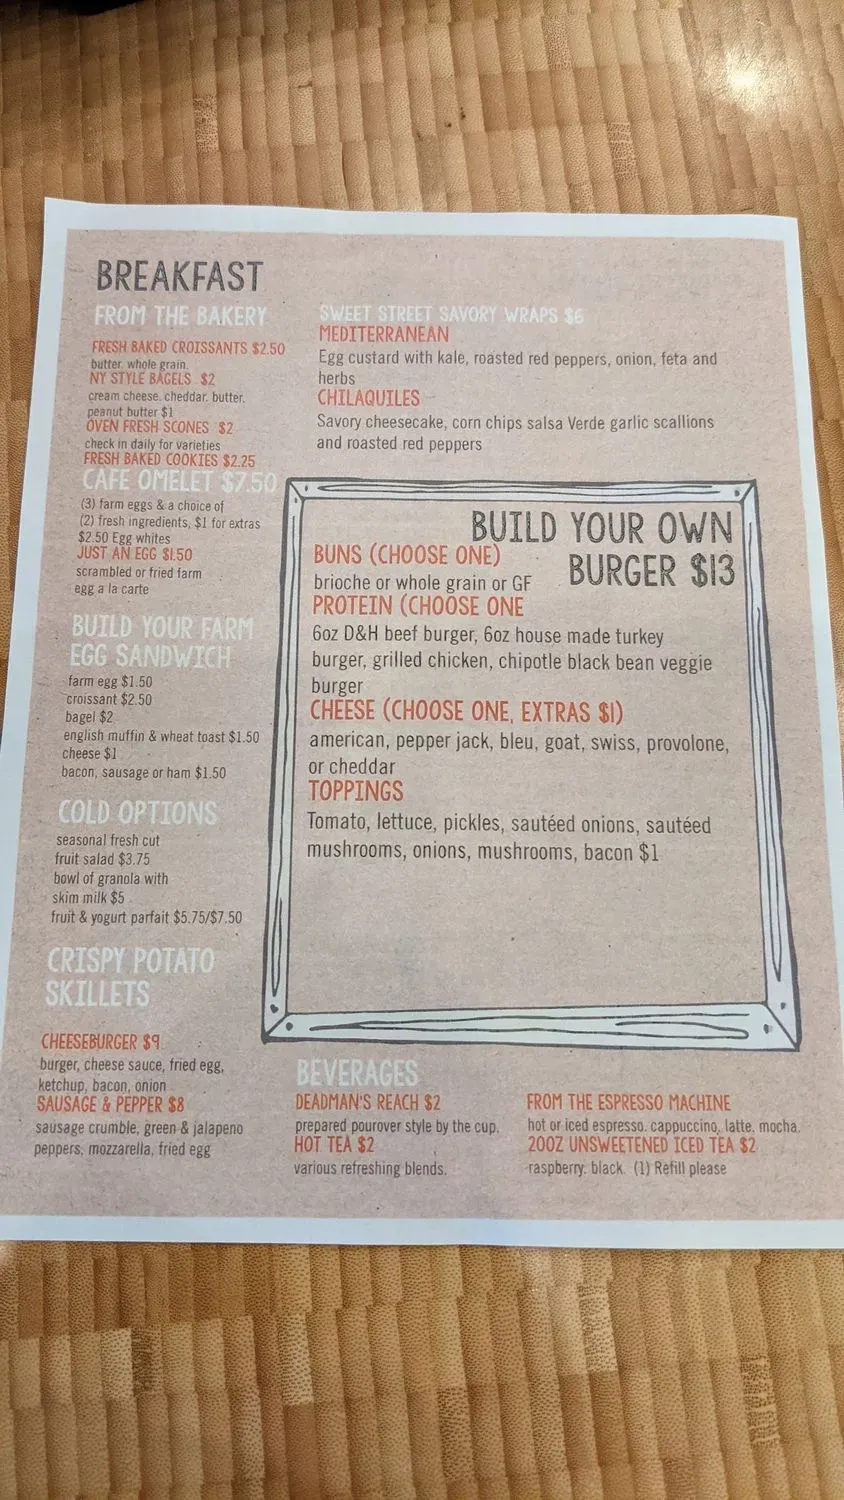 BREAKFAST
FROM THE BAKERY
FRESH BAKED CROISSANTS $2.50
butter. whole grain.
NY STYLE BAGELS $2
cream cheese. cheddar. butter.
peanut butter $1
OVEN FRESH SCONES $2
check in daily for varieties
FRESH BAKED COOKIES $2.25
CAFE OMELET $7.50
(3) farm eggs & a choice of
(2) fresh ingredients, $1 for extras
$2.50 Egg whites
JUST AN EGG $1.50
scrambled or fried farm
egg a la carte
BUILD YOUR FARM
EGG SANDWICH
farm egg $1.50
croissant $2.50
bagel $2
english muffin & wheat toast $1.50
cheese $1
bacon, sausage or ham $1.50
COLD OPTIONS
seasonal fresh cut
fruit salad $3.75
bowl of granola with
skim milk $5
fruit & yogurt parfait $5.75/$7.50
CRISPY POTATO
SKILLETS
CHEESEBURGER $9
burger, cheese sauce, fried egg,
ketchup, bacon, onion
SAUSAGE & PEPPER $8
sausage crumble, green & jalapeno
peppers, mozzarella, fried egg
SWEET STREET SAVORY WRAPS $6
MEDITERRANEAN
Egg custard with kale, roasted red peppers, onion, feta and
herbs
CHILAQUILES
Savory cheesecake, corn chips salsa Verde garlic scallions
and roasted red peppers
BUILD YOUR OWN
BURGER $13
BUNS (CHOOSE ONE)
brioche or whole grain or GF
PROTEIN (CHOOSE ONE
6oz D&H beef burger, 6oz house made turkey
burger, grilled chicken, chipotle black bean veggie
burger
CHEESE (CHOOSE ONE, EXTRAS $1)
american, pepper jack, bleu, goat, swiss, provolone,
or cheddar
TOPPINGS
Tomato, lettuce, pickles, sautéed onions, sautéed
mushrooms, onions, mushrooms, bacon $1
BEVERAGES
DEADMAN'S REACH $2
prepared pourover style by the cup.
HOT TEA $2
various refreshing blends.
FROM THE ESPRESSO MACHINE
hot or iced espresso. cappuccino. latte. mocha.
20OZ UNSWEETENED ICED TEA $2
raspberry. black. (1) Refill please